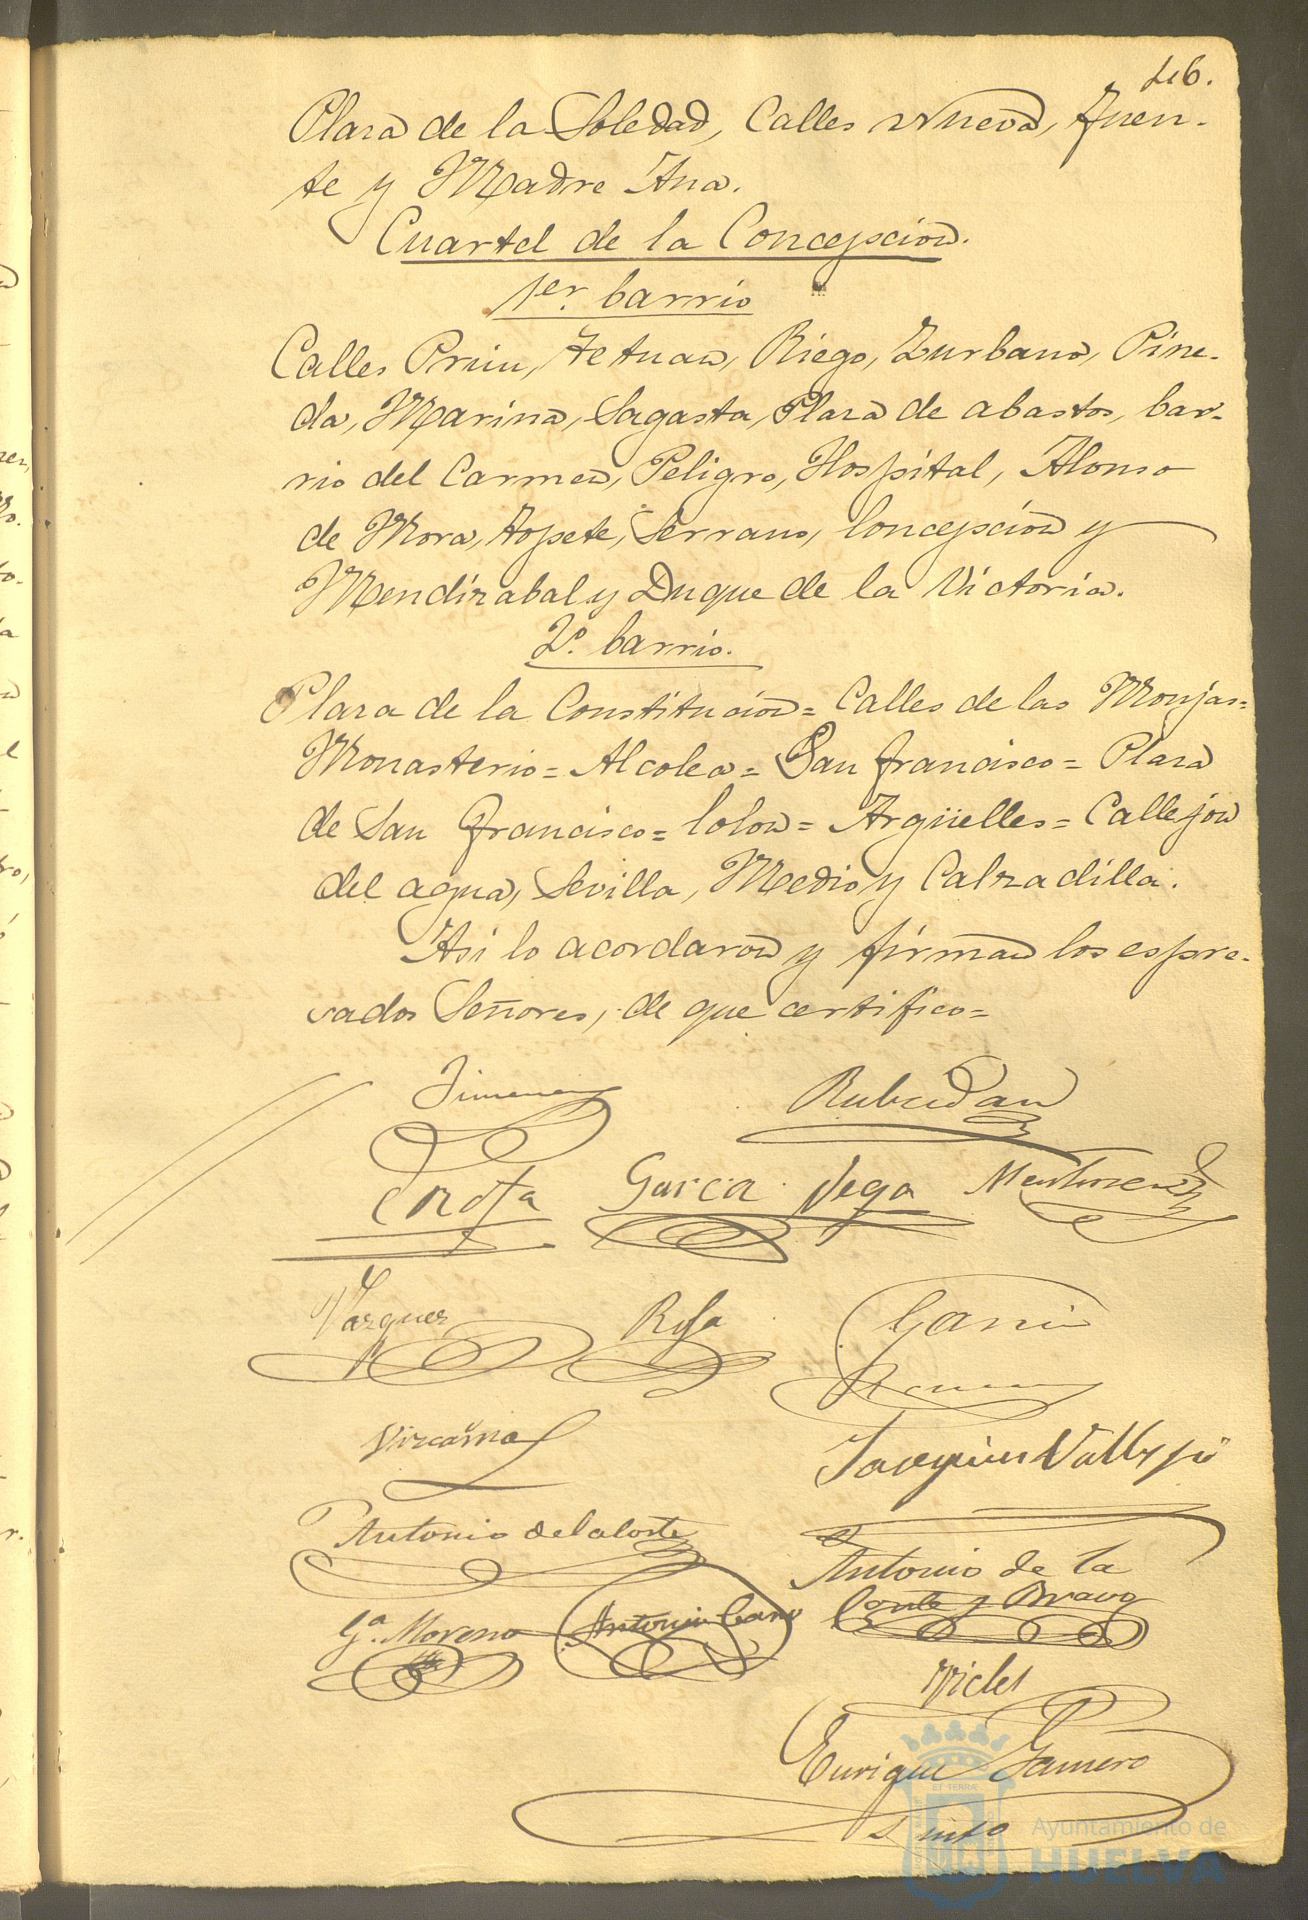 46.
Plaza de la Soledad, Calles Nueva, Fuen-
te y Madre Ana.
Cuartel de la Concepcion.
1er. barrio
Calles Prim, Tetuan, Riego, Zurbano, Pine-
da, Marina, Sagasta, Plaza de abastos, bar-
rio del Carmen, Peligro, Hospital, Alonso
de Mora, Topete, Serrano, Concepcion y
Mendizabal y Duque de la Victoria.
2º. barrio.
Plaza de la Constitucion = Calles de las Monjas =
Monasterio = Alcolea = San Francisco = Plaza
de San Francisco = Colon = Argüelles = Callejon
del agua, Sevilla, Medio y Calzadilla.
Asi lo acordaron y firman los espre-
sados Señores, de que certifico =
Jimenez
Garcia Vega
Vazquez
Garcia
Vizcaina
Joaquin Vallejo
Antonio de la Corte
Antonio de la
Corte y Bravo
Ga. Moreno Antonio Cano
Enrique Gamero
ET TERRÆ
Ayuntamiento de
HUELVA